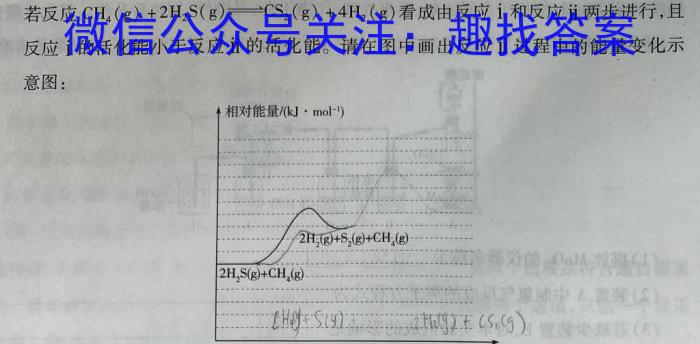 若反应 CH₄(g)+2H₂S(g)⇌CS₂(g)+4H₂(g)看成由反应 i 和反应 ii 两步进行，且
反应 i 的活化能小于反应 ii 的活化能。请在图中画出反应 过程中的能量变化示
微信公众号关注：趣找答案
意图：
相对能量/(kJ·mol⁻¹)
2H₂(g)+S₂(g)+CH₄(g)
2H₂S(g)+CH₄(g)